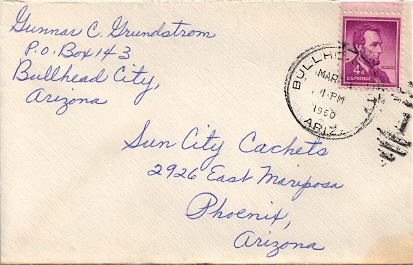 Gunnar C. Grundstrom
P.O. Box 143
Bullhead City,
Arizona
4¢
U.S. POSTAGE
MAR
PM
1960
ARIZ.
Sun City Cachets
2926 East Mariposa
Phoenix,
Arizona
1